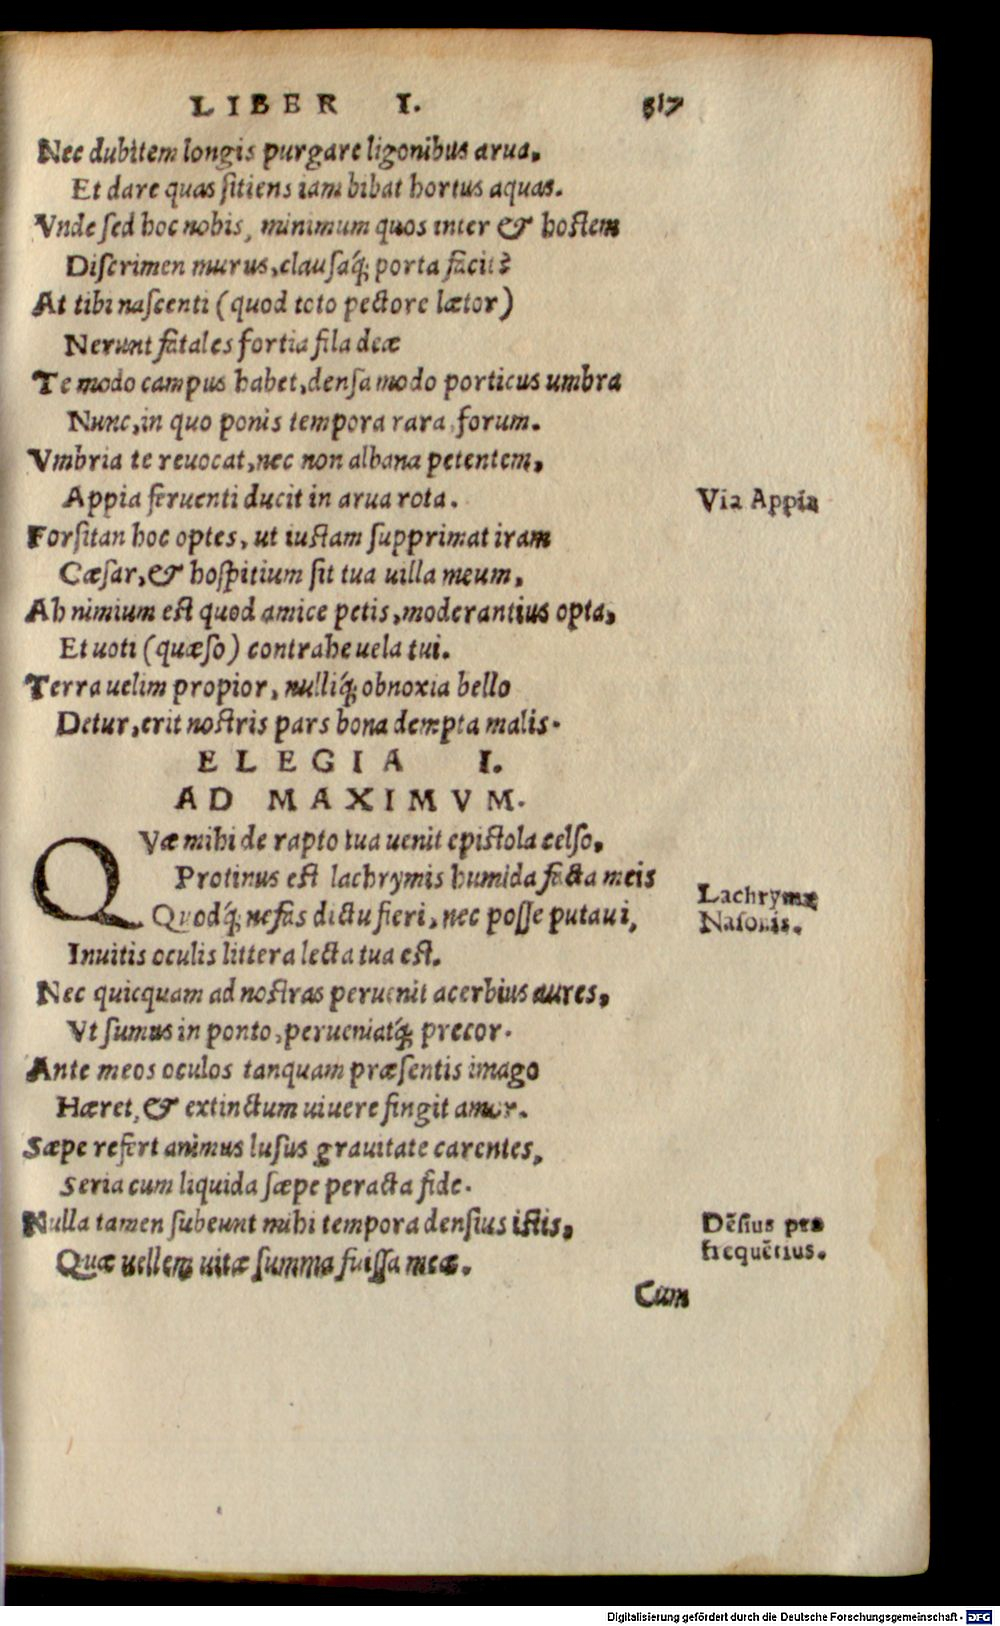 LIBER I. 517
Nec dubitem longis purgare ligonibus arua,
Et dare quas sitiens iam bibat hortus aquas.
Vnde sed hoc nobis, minimum quos inter & hostem
Discrimen murus, clausaq́; porta facit?
At tibi nascenti (quod toto pectore lætor)
Nerunt fatales fortia fila deæ
Te modo campus habet, densa modo porticus umbra
Nunc, in quo ponis tempora rara, forum.
Vmbria te reuocat, nec non albana petentem,
Appia feruenti ducit in arua rota.
Via Appia
Forsitan hoc optes, ut iustam supprimat iram
Cæsar, & hospitium sit tua uilla meum,
Ah nimium est quod amice petis, moderantius opta,
Et uoti (quæso) contrahe uela tui.
Terra uelim propior, nulliq́; obnoxia bello
Detur, erit nostris pars bona dempta malis.
ELEGIA I.
AD MAXIMVM.
QVæ mihi de rapto tua uenit epistola celso,
Protinus est lachrymis humida facta meis
Lachrymæ
Quodq́; nefas dictu fieri, nec posse putaui,
Nasonis.
Inuitis oculis littera lecta tua est.
Nec quicquam ad nostras peruenit acerbius aures,
Vt sumus in ponto, perueniatq́; precor.
Ante meos oculos tanquam præsentis imago
Hæret, & extinctum uiuere fingit amor.
Sæpe refert animus lusus grauitate carentes,
Seria cum liquida sæpe peracta fide.
Nulla tamen subeunt mihi tempora densius istis,
Dēsius pro
Quæ uellem uitæ summa fuissa meæ.
frequētius.
Cum
Digitalisierung gefördert durch die Deutsche Forschungsgemeinschaft - DFG